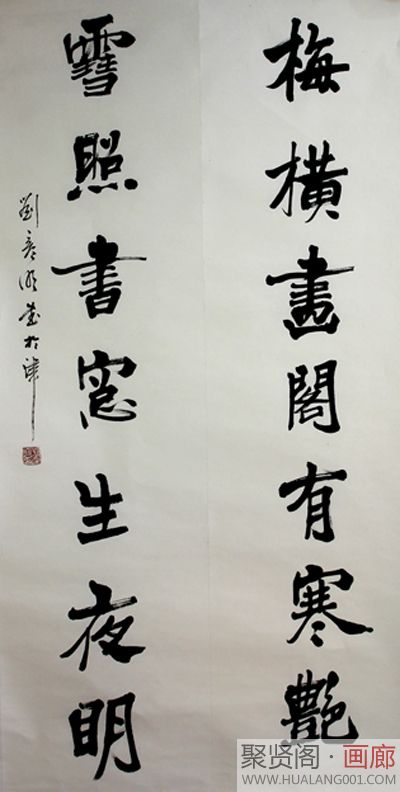 梅橫畫閣有寒艷
雪照書窓生夜明
劉彦明書於津
聚贤阁·画廊
WWW.HUALANG001.COM